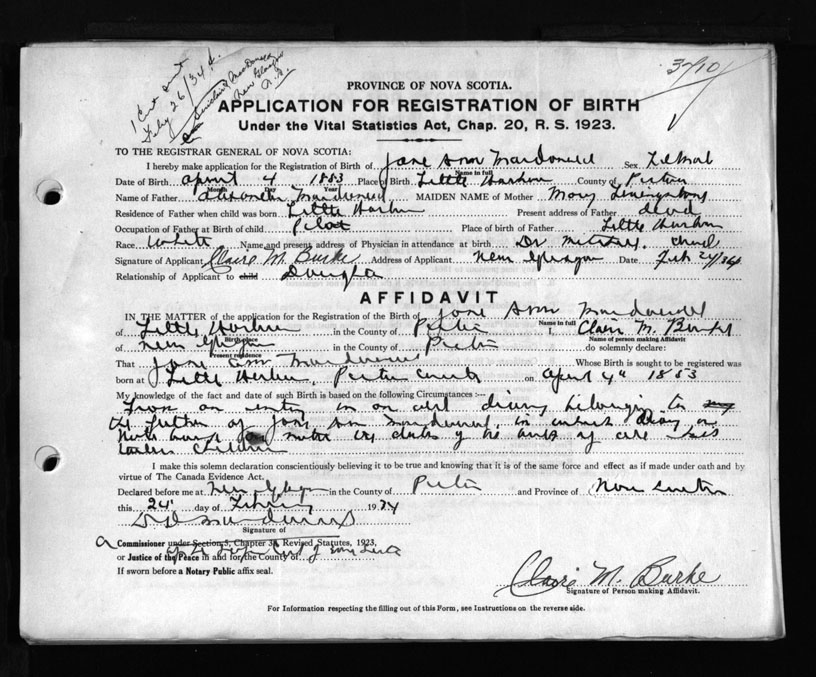 1 Cert sent
Feby 26/34
MacDonald
New Glasgow
N.S.
3710
PROVINCE OF NOVA SCOTIA.
APPLICATION FOR REGISTRATION OF BIRTH
Under the Vital Statistics Act, Chap. 20, R. S. 1923.
TO THE REGISTRAR GENERAL OF NOVA SCOTIA:
I hereby make application for the Registration of Birth of Jane Ann Macdonald Sex Female
Name in full
Date of Birth April 4 1883 Place of Birth Little Harbor County of Pictou
Month Day Year
Name of Father Alexander Macdonald MAIDEN NAME of Mother Mary Livingstone
Residence of Father when child was born Little Harbor Present address of Father dead
Occupation of Father at Birth of child Pilot Place of birth of Father Little Harbor
Race White Name and present address of Physician in attendance at birth Dr
Signature of Applicant Claire M. Burke Address of Applicant New Glasgow Date Feb 24/34
Relationship of Applicant to child Daughter
AFFIDAVIT
IN THE MATTER of the application for the Registration of the Birth of Jane Ann Macdonald
Name in full
of Little Harbor in the County of Pictou Claire M. Burke
Birth-place Name of person making Affidavit
of New Glasgow in the County of Pictou do solemnly declare:
Present residence
That Jane Ann Macdonald Whose Birth is sought to be registered was
born at Little Harbor, Pictou County on April 4th 1883
My knowledge of the fact and date of such Birth is based on the following Circumstances:--
From an entry in an old diary belonging to
the father of Jane Ann Macdonald, in which diary
dates of the births of all his
children
I make this solemn declaration conscientiously believing it to be true and knowing that it is of the same force and effect as if made under oath and by
virtue of The Canada Evidence Act.
Declared before me at New Glasgow in the County of Pictou and Province of Nova Scotia
this 24 day of February 1934
Signature of
A Commissioner under Section 5, Chapter 38, Revised Statutes, 1923,
of the Supreme Court of Nova Scotia
or Justice of the Peace in and for the County of
If sworn before a Notary Public affix seal.
Claire M. Burke
Signature of Person making Affidavit.
For Information respecting the filling out of this Form, see Instructions on the reverse side.